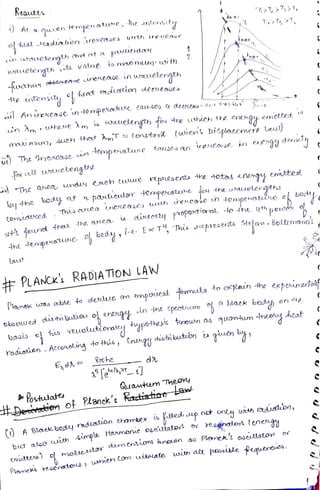 Results
i) At a given temperature, the intensity
of heat radiation increases with increase
in wavelength and at a particular
wavelength its value is maximum; with
further increase in wavelength
the intensity of heat radiation decreases.
ii) An increase in temperature causes a decrease
in λm, where λm is wavelength for the which the energy emitted is
maximum, such that λmT = constant (Wien's Displacement Law)
iii) The increase in temperature causes an increase in energy density
for all wavelengths
The area under each curve represents the total energy emitted
by the body at a particular temperature for the wavelengths
considered. This area increases with increase in temperature of body
It's found that the area is directly proportional to the 4th power of
the temperature of body, i.e. E ∝ T⁴, This represents Stefan-Boltzmann's
law
# PLANCK's RADIATION LAW
Planck was able to derive an empirical formula to explain the experimentally
observed distribution of energy in the spectrum of a black body on the
basis of his revolutionary hypothesis known as quantum theory heat
radiation. According to this, Energy distribution is given by,
E dλ = 8πhc / λ⁵ [e^hc/λKT - 1] dλ
* Postulates Quantum Theory
# Derivation of Planck's Radiation Law
(1) A Blackbody radiation chamber is filled up not only with radiation,
but also with simple Harmonic oscillators or resonators (energy
emitters) of molecular dimensions known as Planck's oscillators or
Planck's resonators, which can vibrate with all possible frequencies.